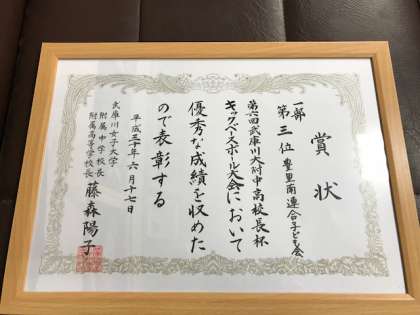 賞状
一部
第三位 豊里南連合子ども会
第六回武庫川大附中高校長杯
キックベースボール大会において
優秀な成績を収めた
ので表彰する
平成三十年六月十七日
武庫川女子大学
附属中学校長
附属高等学校長
藤森陽子